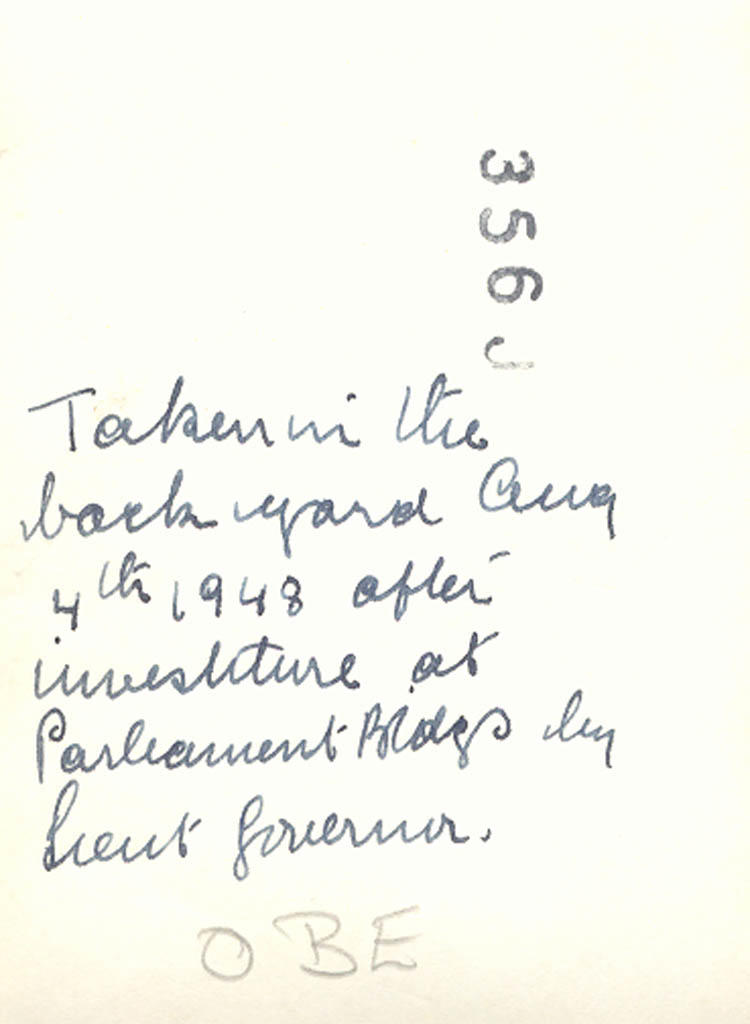 356J
Taken in the
back yard Aug
4th 1948 after
investiture at
Parliament Bldgs by
Lieut Governor.
OBE